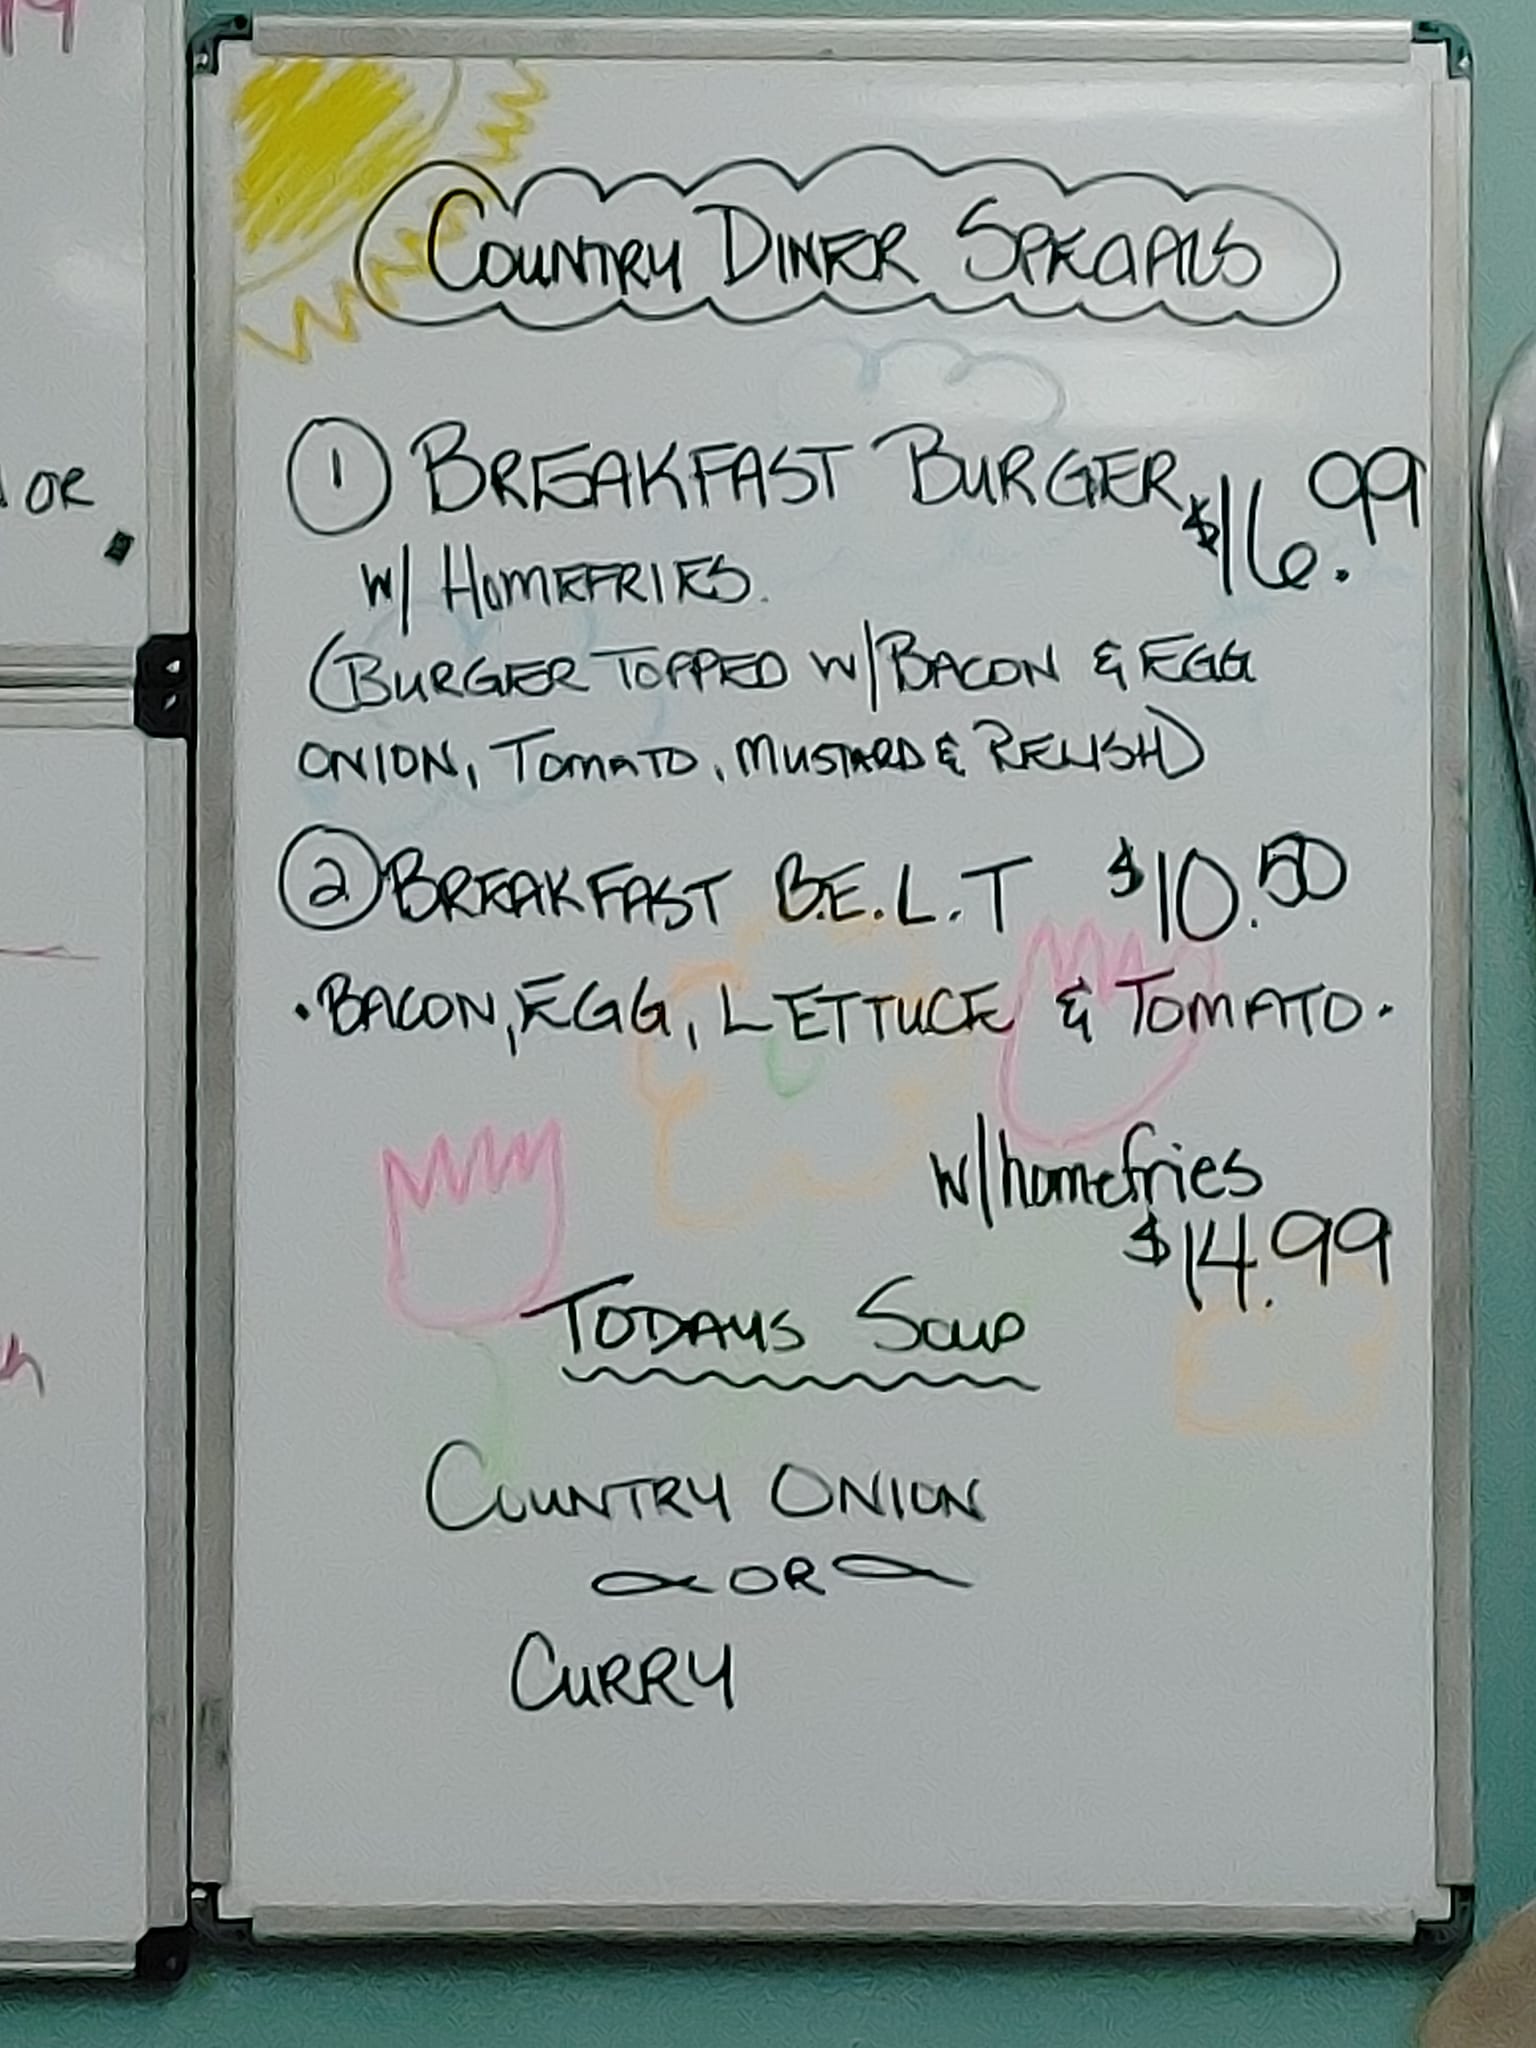 COUNTRY DINER SPECIALS
① BREAKFAST BURGER $16.99
W/ HOMEFRIES.
(BURGER TOPPED W/BACON & EGG
ONION, TOMATO, MUSTARD & RELISH)
② BREAKFAST B.E.L.T $10.50
• BACON, EGG, LETTUCE & TOMATO •
w/homefries
$14.99
TODAYS SOUP
COUNTRY ONION
OR
CURRY
OR